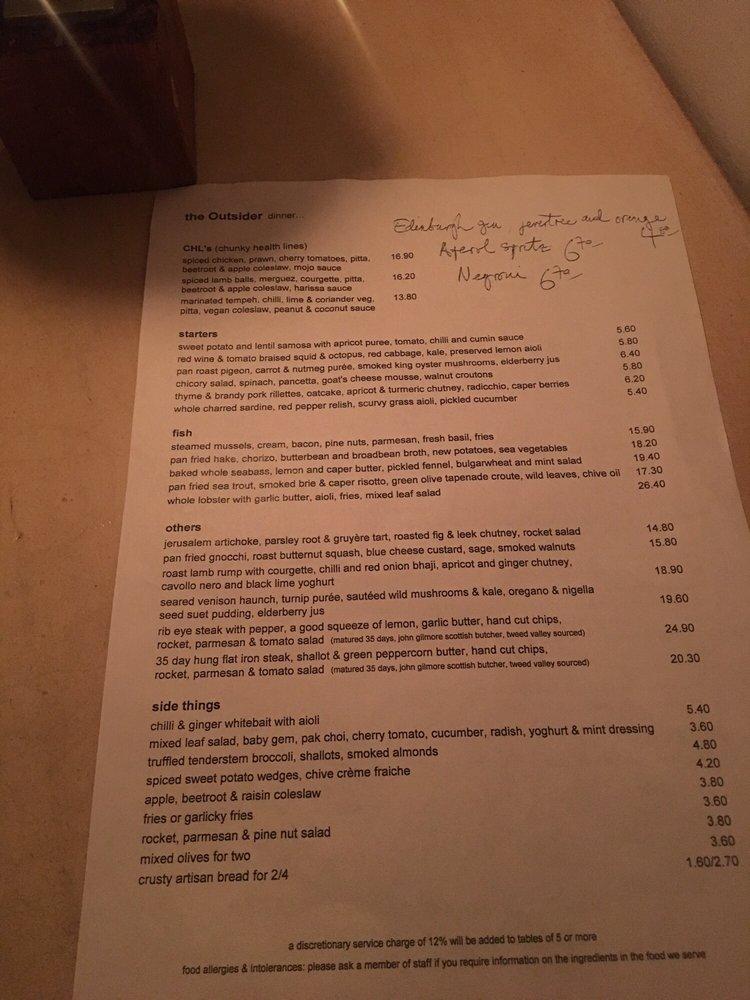 the Outsider dinner...
Edinburgh gin, fevertree and orange
4 50
Aperol Spritz 6 70
Negroni 6 70
CHL's (chunky health lines)
spiced chicken, prawn, cherry tomatoes, pitta, 16.90
beetroot & apple coleslaw, mojo sauce
spiced lamb balls, merguez, courgette, pitta, 16.20
beetroot & apple coleslaw, harissa sauce
marinated tempeh, chilli, lime & coriander veg, 13.80
pitta, vegan coleslaw, peanut & coconut sauce
starters
sweet potato and lentil samosa with apricot puree, tomato, chilli and cumin sauce 5.60
red wine & tomato braised squid & octopus, red cabbage, kale, preserved lemon aioli 5.80
pan roast pigeon, carrot & nutmeg purée, smoked king oyster mushrooms, elderberry jus 6.40
chicory salad, spinach, pancetta, goat's cheese mousse, walnut croutons 5.80
thyme & brandy pork rillettes, oatcake, apricot & turmeric chutney, radicchio, caper berries 6.20
whole charred sardine, red pepper relish, scurvy grass aioli, pickled cucumber 5.40
fish
steamed mussels, cream, bacon, pine nuts, parmesan, fresh basil, fries 15.90
pan fried hake, chorizo, butterbean and broadbean broth, new potatoes, sea vegetables 18.20
baked whole seabass, lemon and caper butter, pickled fennel, bulgarwheat and mint salad 19.40
pan fried sea trout, smoked brie & caper risotto, green olive tapenade croute, wild leaves, chive oil 17.30
whole lobster with garlic butter, aioli, fries, mixed leaf salad 26.40
others
jerusalem artichoke, parsley root & gruyère tart, roasted fig & leek chutney, rocket salad 14.80
pan fried gnocchi, roast butternut squash, blue cheese custard, sage, smoked walnuts 15.80
roast lamb rump with courgette, chilli and red onion bhaji, apricot and ginger chutney,
cavollo nero and black lime yoghurt 18.90
seared venison haunch, turnip purée, sautéed wild mushrooms & kale, oregano & nigella
seed suet pudding, elderberry jus 19.60
rib eye steak with pepper, a good squeeze of lemon, garlic butter, hand cut chips,
rocket, parmesan & tomato salad (matured 35 days, john gilmore scottish butcher, tweed valley sourced) 24.90
35 day hung flat iron steak, shallot & green peppercorn butter, hand cut chips,
rocket, parmesan & tomato salad (matured 35 days, john gilmore scottish butcher, tweed valley sourced) 20.30
side things
chilli & ginger whitebait with aioli 5.40
mixed leaf salad, baby gem, pak choi, cherry tomato, cucumber, radish, yoghurt & mint dressing 3.60
truffled tenderstem broccoli, shallots, smoked almonds 4.80
spiced sweet potato wedges, chive crème fraiche 4.20
apple, beetroot & raisin coleslaw 3.80
fries or garlicky fries 3.60
rocket, parmesan & pine nut salad 3.80
mixed olives for two 3.60
crusty artisan bread for 2/4 1.60/2.70
a discretionary service charge of 12% will be added to tables of 5 or more
food allergies & intolerances: please ask a member of staff if you require information on the ingredients in the food we serve